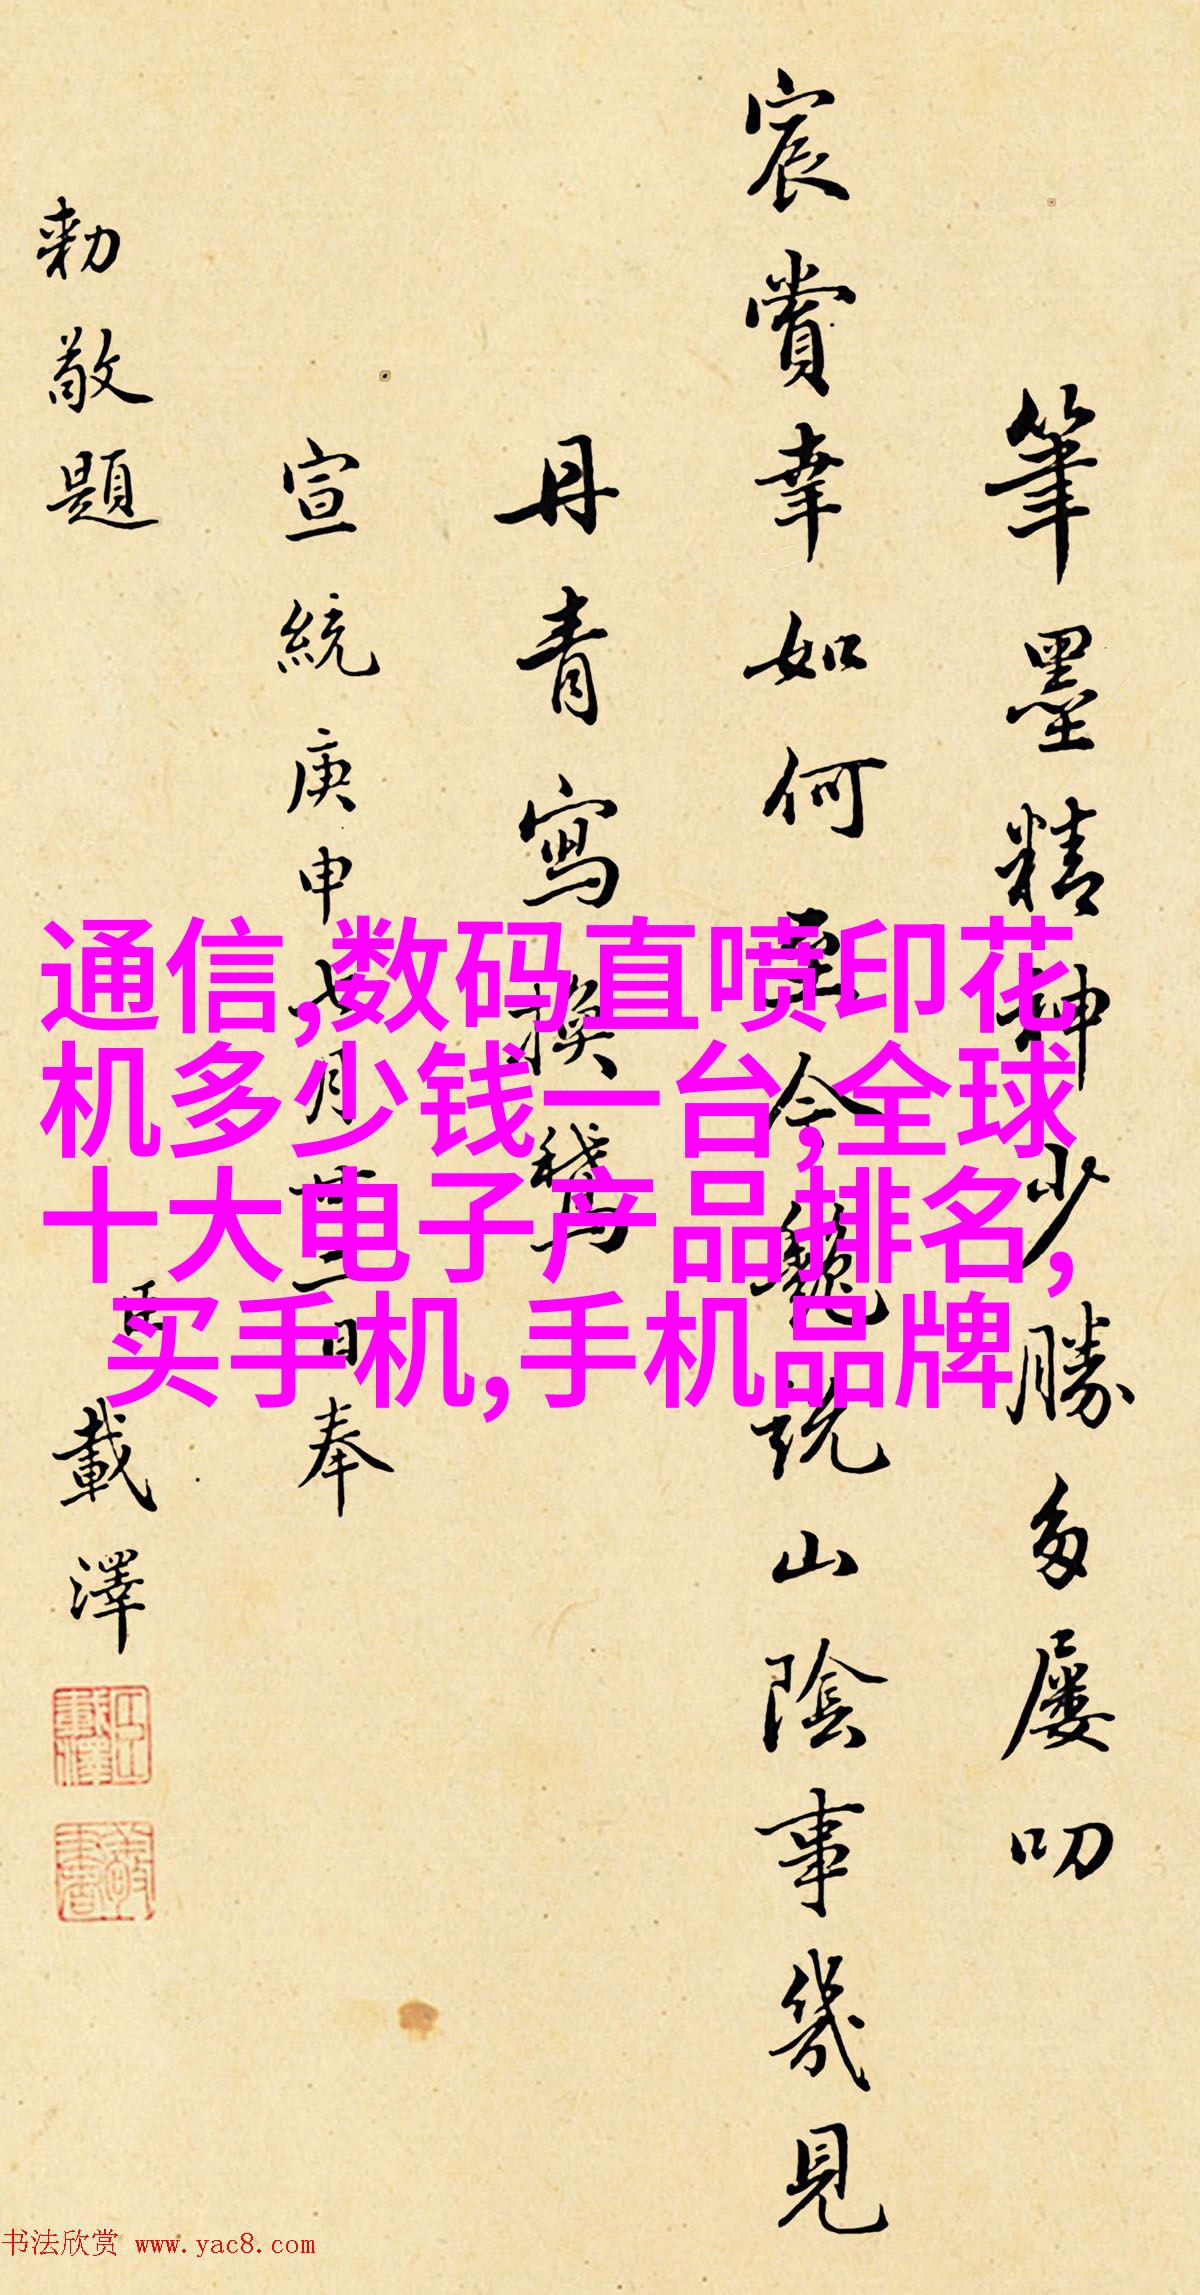 筆墨精神少勝多屢叨
宸賞幸如何至今艷說山陰事幾見
丹青寫換鵝
宣統庚申七月廿二日奉
勅敬題
臣載澤
通信,数码直喷印花
机多少钱一台,全球
十大电子产品排名,
买手机,手机品牌
书法欣赏 www.yac8.com